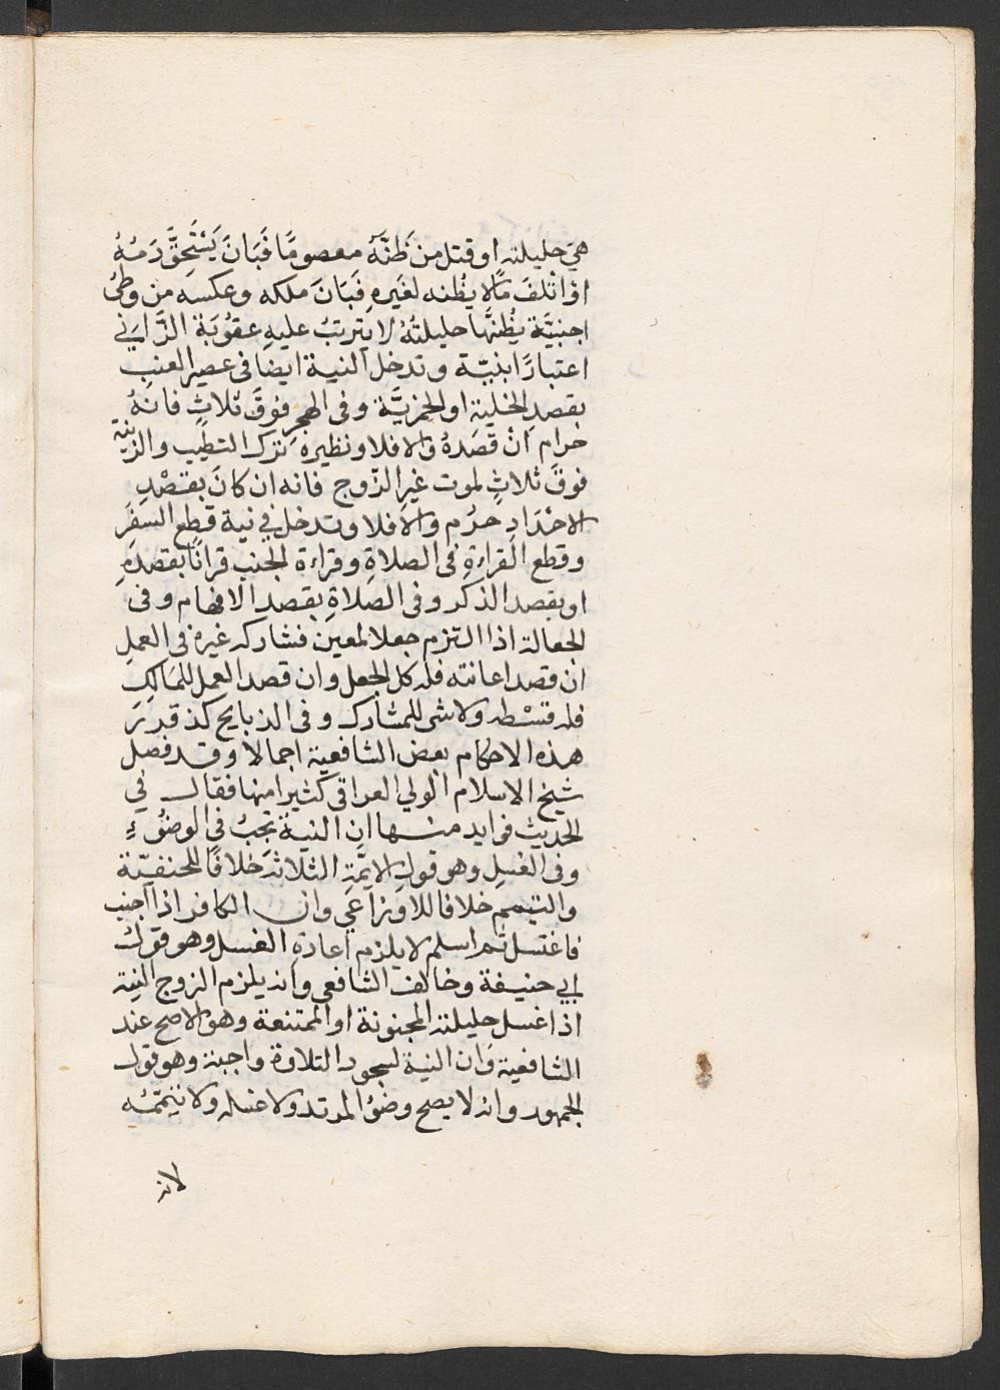 هيَ حليلته او قتل من ظَنَّهُ معصومًا فَبَانَ يَسْتَحِقَّ دَمُهُ
اواتْلفَ مَالا يظُنه لغَيرهِ فَبَانَ ملكه وعكسه من وطئ
اجنبيَّة يظُنهَّا حليلتُهُ لا يترتبُ عليهِ عقُوبَة الزَّاني
اعتبارًا بنيّة وتدخل النية ايضا فى عصير العنبِ
بقصدِ الخلية او الخمريَّة وفى الهجرِ فوقَ ثلاثٍ فانهُ
حرام انْ قصَدهُ والا فلا ونظيره ترك التطيب والزينة
فوقَ ثلاثٍ لموت غيرِ الزّوج فانه ان كانَ بقصْدِ
الاحْدَادِ حرُم والا فلا وتدخل في نية قطع السفَر
وقطع القراءةِ فى الصلاةِ وقراءة الجنب قرانًا بقصدهِ
او بقصد الذكر وفى الصّلاةِ بقصد الافهام وفى
الجعالة اذا التزم جعلا لمعين فشاركه غيره فى العملِ
ان قصد اعانته فله كل الجعل وان قصد العمل للمَالكِ
فله قسْطه ولا شى للمشارك وفى الذبايح كذ قدّرَ
هذه الاحكام بعض الشافعية اجمالا وقد فصل
شيخ الاسلام الولي العراقى كثيرا منها فقال في
الحديث فوايد منها ان النية تجبُ في الوضُوءِ
وفى الغسلِ وهو قول الايمّةِ الثلاثة خلافًا للحنفيّة
والتيمم خلافا للاوزاعي وان الكافر اذا اجنب
فاغتسل ثم اسلم لا يلزم اعادة الغسل وهو قول
ابي حنيفة وخالف الشافعي وانه يلزم الزوج النية
اذا غسل حليلته المجنونة او الممتنعة وهو الاصح عند
الشافعية وان النية لسجود التلاوة واجبة وهو قول
الجمهور وانه لا يصح وضوُ المرتد ولا غسله ولا تيممّه
لانه